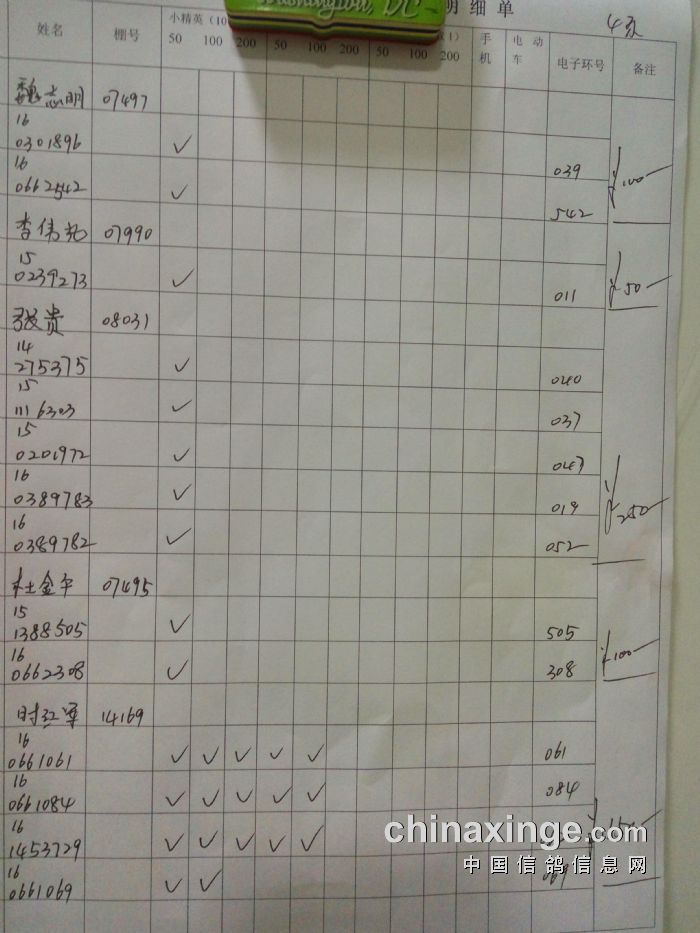 Washington, DC
明细单
4页
姓名 棚号 小精英（10 手机 电动车 电子环号 备注
50 100 200 50 100 200 50 100 200
魏志明 07497
16
0301896 ✓ 039
16
0662542 ✓ 542 ¥100
07990
15
0239273 ✓ 011 ¥50
张贵 08031
14
275375 ✓ 040
15
1116303 ✓ 037
15
0201972 ✓ 047
16
0389783 ✓ 019 ¥250
16
0389782 ✓ 052
杜金平 07495
15
1388505 ✓ 505
16
0662308 ✓ 308 ¥100
时红军 14169
16
0661061 ✓ ✓ ✓ ✓ ✓ 061
16
0661084 ✓ ✓ ✓ ✓ ✓ 084
16
1453729 ✓ ✓ ✓ ✓ ✓
16
0661069 ✓ ✓
chinaxinge.com
中国信鸽信息网